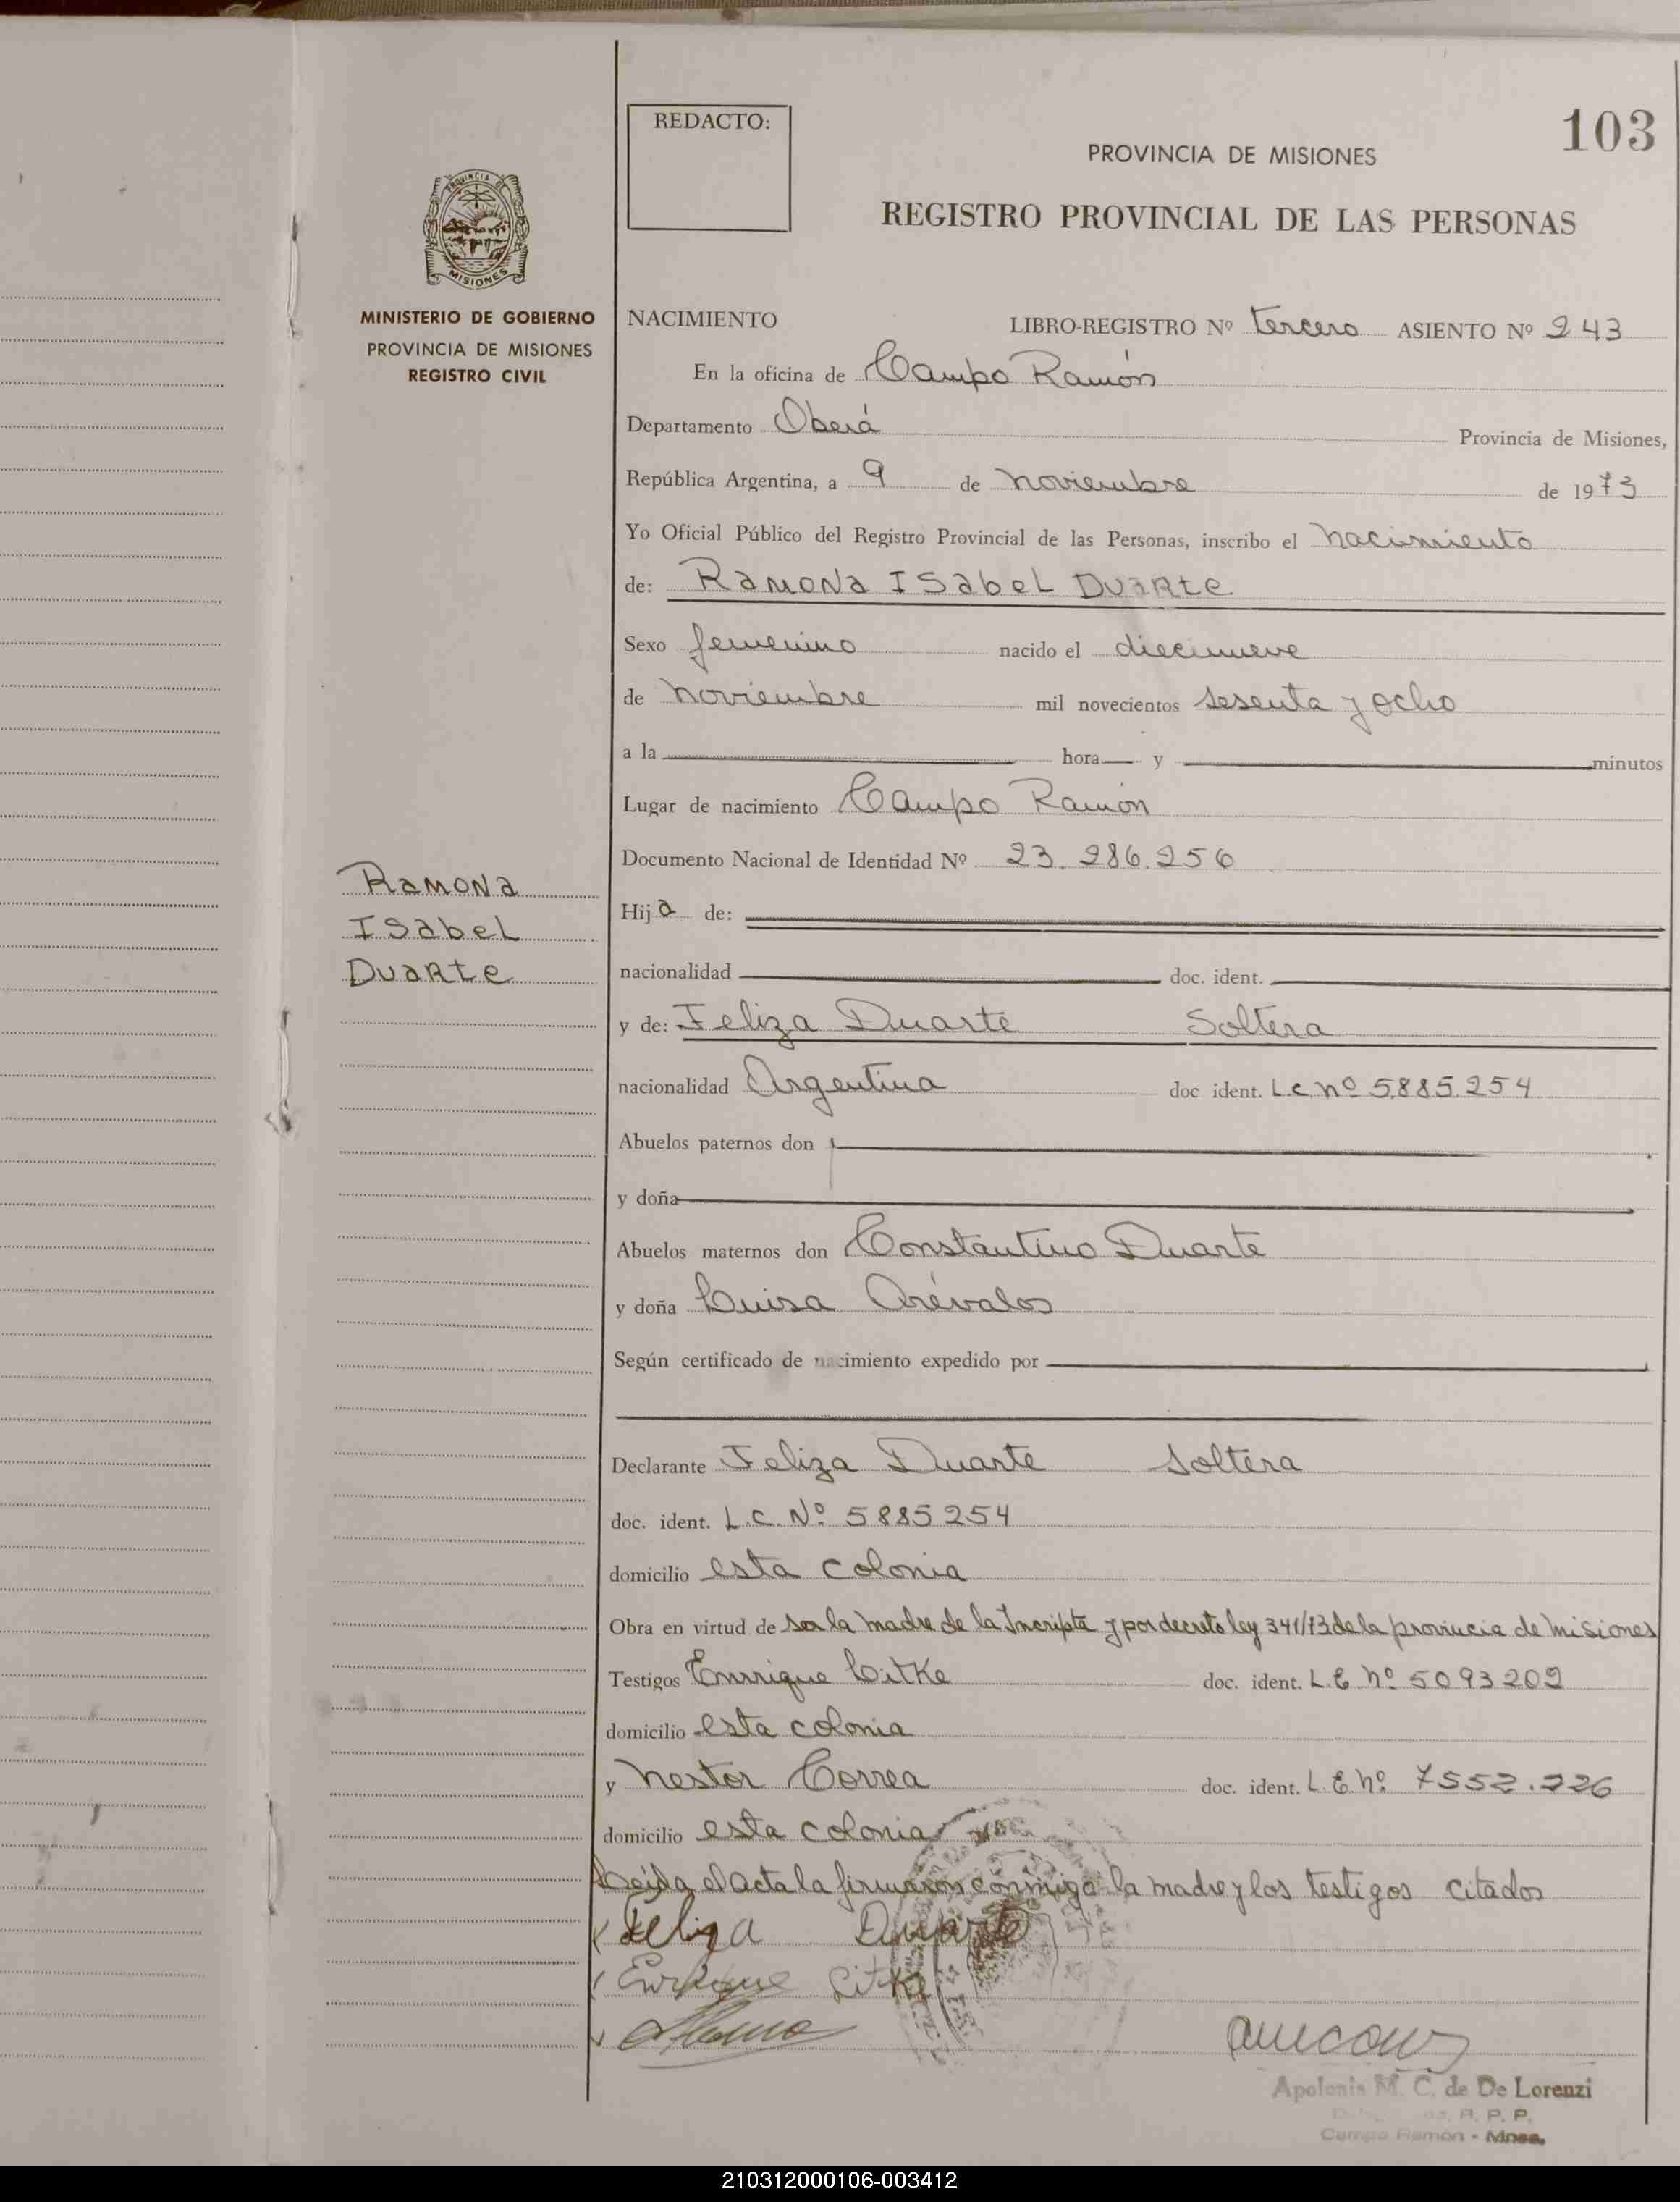 REDACTO:
103
PROVINCIA DE MISIONES
REGISTRO PROVINCIAL DE LAS PERSONAS
PROVINCIA DE
MISIONES
MINISTERIO DE GOBIERNO
PROVINCIA DE MISIONES
REGISTRO CIVIL
NACIMIENTO LIBRO-REGISTRO Nº tercero ASIENTO Nº 243
En la oficina de Campo Ramón
Departamento Oberá Provincia de Misiones,
República Argentina, a 9 de noviembre de 1973
Yo Oficial Público del Registro Provincial de las Personas, inscribo el nacimiento
de: Ramona Isabel Duarte
Sexo femenino nacido el diecinueve
de noviembre mil novecientos sesenta y ocho
a la hora y minutos
Lugar de nacimiento Campo Ramón
Documento Nacional de Identidad Nº 23.286.256
Ramona
Isabel
Duarte
Hija de:
nacionalidad doc. ident.
y de: Feliza Duarte Soltera
nacionalidad Argentina doc ident. L.C. nº 5.885.254
Abuelos paternos don
y doña
Abuelos maternos don Constantino Duarte
y doña Luisa Arévalos
Según certificado de nacimiento expedido por
Declarante Feliza Duarte Soltera
doc. ident. L.C. Nº 5885254
domicilio esta colonia
Obra en virtud de ser la madre de la Incripta y por decreto ley 341/73 de la provincia de misiones
Testigos Enrrique Litke doc. ident. L.E. nº 5093202
domicilio esta colonia
y Nestor Correa doc. ident. L.E. nº 7552.226
domicilio esta colonia
Leída el acta la firmaron conmigo la madre y los testigos citados
Feliza Duarte
Enrique Litke
Apolonia M. C. de De Lorenzi
R. P. P.
Campo Ramón - Mnes.
210312000106-003412